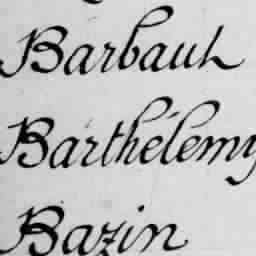 Barbaut
Barthélemy
Bazin